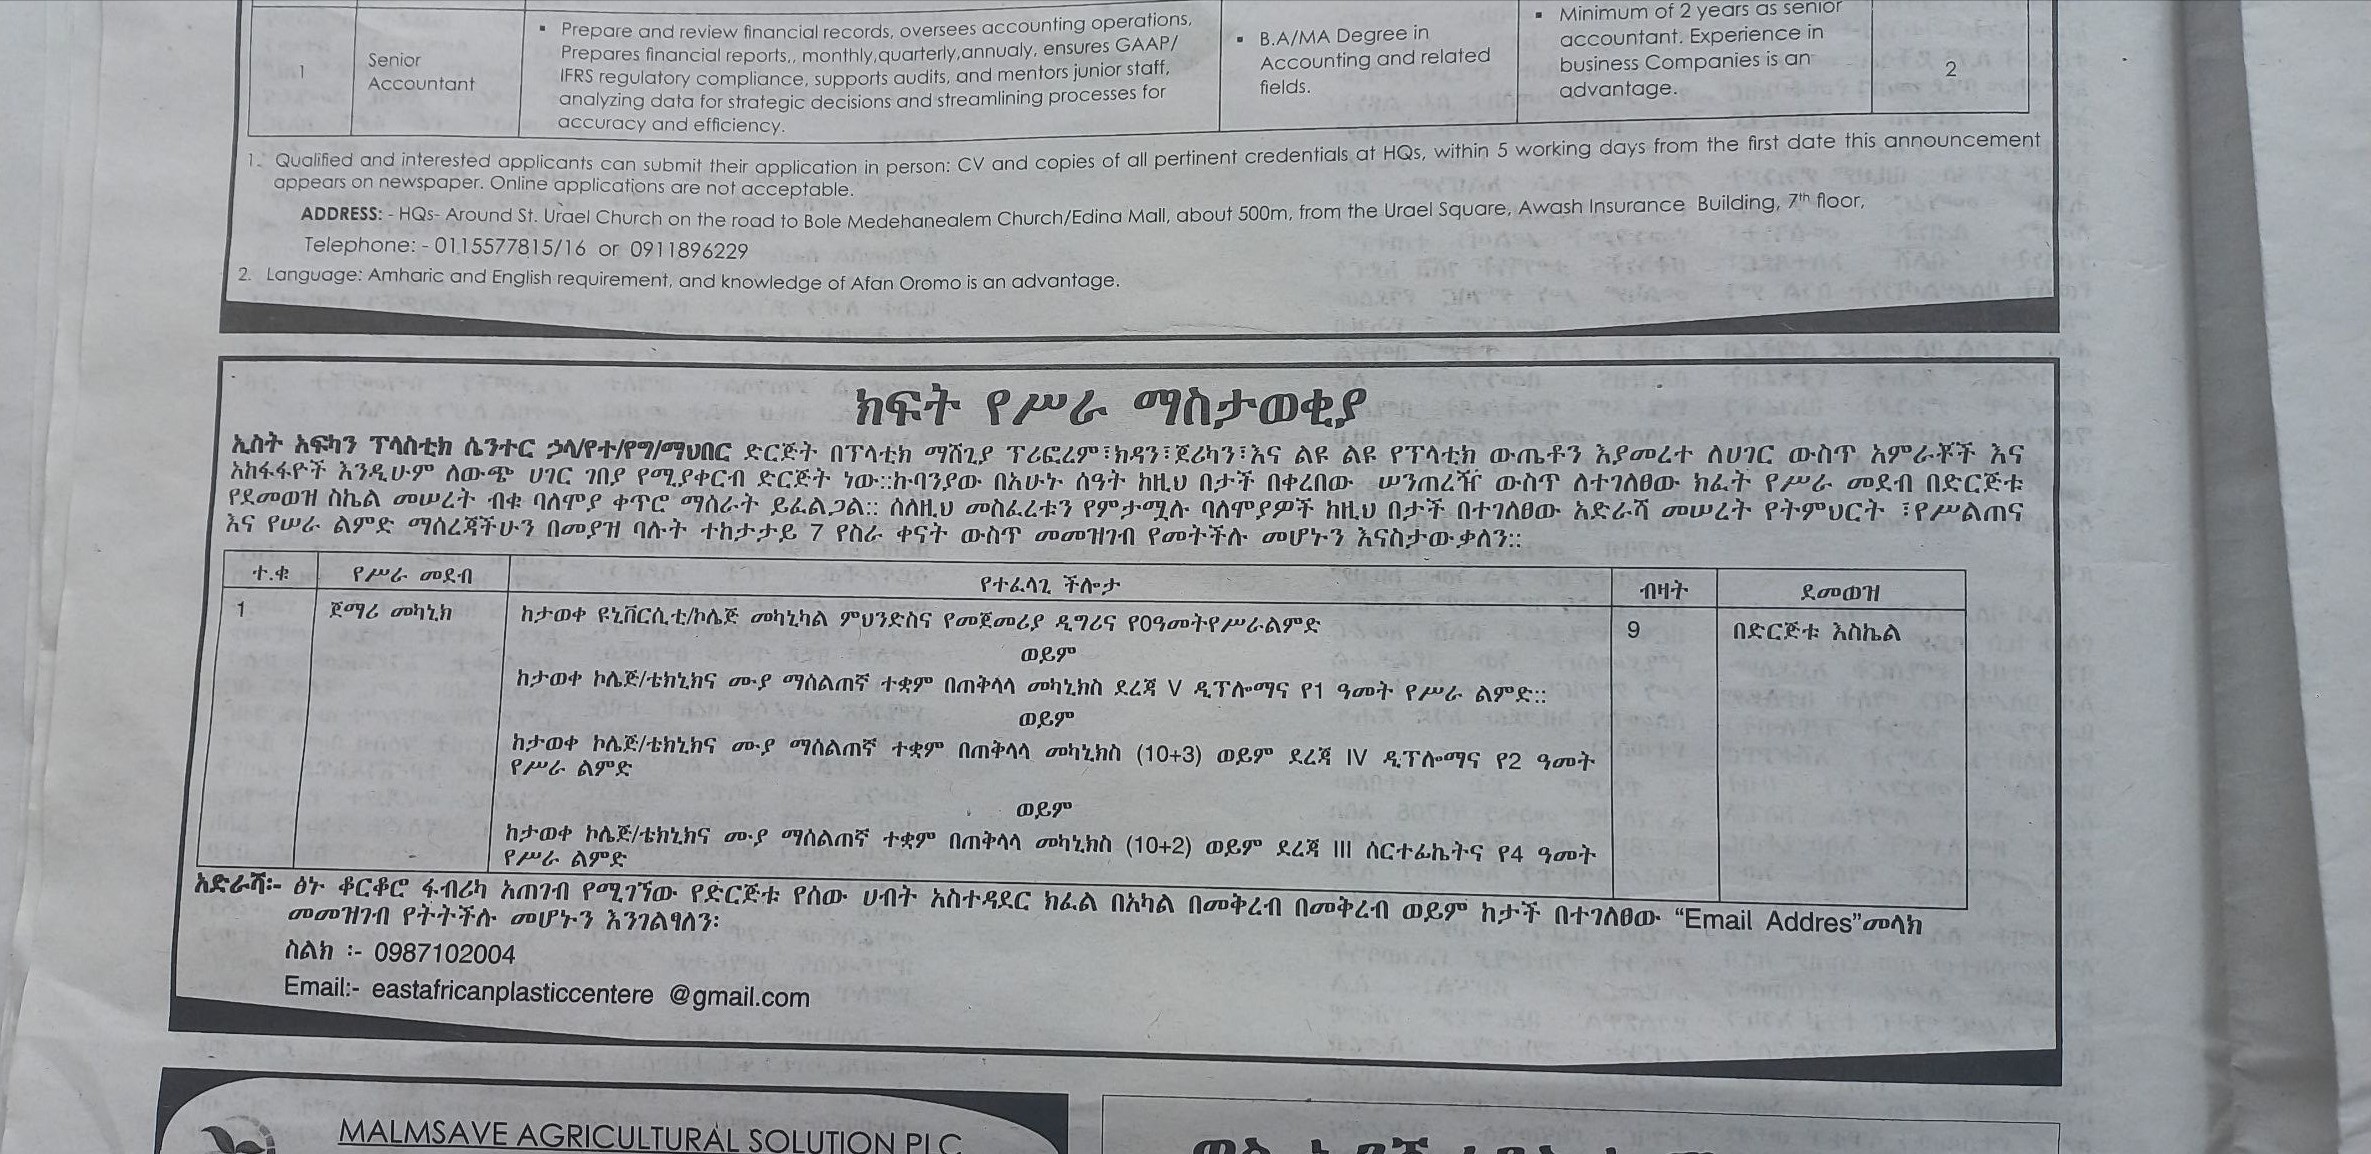 1
Senior
Accountant
▪ Prepare and review financial records, oversees accounting operations,
Prepares financial reports,, monthly,quarterly,annualy, ensures GAAP/
IFRS regulatory compliance, supports audits, and mentors junior staff,
analyzing data for strategic decisions and streamlining processes for
accuracy and efficiency.
▪ B.A/MA Degree in
Accounting and related
fields.
▪ Minimum of 2 years as senior
accountant. Experience in
business Companies is an
advantage.
2
1. Qualified and interested applicants can submit their application in person: CV and copies of all pertinent credentials at HQs, within 5 working days from the first date this announcement
appears on newspaper. Online applications are not acceptable.
ADDRESS: - HQs- Around St. Urael Church on the road to Bole Medehanealem Church/Edina Mall, about 500m, from the Urael Square, Awash Insurance Building, 7th floor,
Telephone: - 0115577815/16 or 0911896229
2. Language: Amharic and English requirement, and knowledge of Afan Oromo is an advantage.
ክፍት የሥራ ማስታወቂያ
ኢስት አፍካን ፕላስቲክ ሴንተር ኃላ/የተ/የግ/ማህበር ድርጅት በፕላቲክ ማሸጊያ ፕሪፎረም፣ክዳን፣ጀሪካን፣እና ልዩ ልዩ የፕላቲክ ውጤቶን እያመረተ ለሀገር ውስጥ አምራቾች እና
አከፋፋዮች እንዲሁም ለውጭ ሀገር ገበያ የሚያቀርብ ድርጅት ነው::ኩባንያው በአሁኑ ሰዓት ከዚህ በታች በቀረበው ሠንጠረዥ ውስጥ ለተገለፀው ክፈት የሥራ መደብ በድርጅቱ
የደመወዝ ስኬል መሠረት ብቁ ባለሞያ ቀጥሮ ማሰራት ይፈልጋል:: ስለዚህ መስፈረቱን የምታሟሉ ባለሞያዎች ከዚህ በታች በተገለፀው አድራሻ መሠረት የትምህርት ፣የሥልጠና
እና የሠራ ልምድ ማሰረጃችሁን በመያዝ ባሉት ተከታታይ 7 የስራ ቀናት ውስጥ መመዝገብ የመትችሉ መሆኑን እናስታውቃለን::
ተ.ቁ
የሥራ መደብ
የተፈላጊ ችሎታ
ብዛት
ደመወዝ
1
ጀማሪ መካኒክ
ከታወቀ ዩኒቨርሲቲ/ኮሌጅ መካኒካል ምህንድስና የመጀመሪያ ዲግሪና የ0ዓመትየሥራልምድ
9
በድርጅቱ እስኬል
ወይም
ከታወቀ ኮሌጅ/ቴክኒክና ሙያ ማሰልጠኛ ተቋም በጠቅላላ መካኒክስ ደረጃ V ዲፕሎማና የ1 ዓመት የሥራ ልምድ::
ወይም
ከታወቀ ኮሌጅ/ቴክኒክና ሙያ ማሰልጠኛ ተቋም በጠቅላላ መካኒክስ (10+3) ወይም ደረጃ IV ዲፕሎማና የ2 ዓመት
የሥራ ልምድ
ወይም
ከታወቀ ኮሌጅ/ቴክኒክና ሙያ ማሰልጠኛ ተቋም በጠቅላላ መካኒክስ (10+2) ወይም ደረጃ III ሰርተፊኬትና የ4 ዓመት
የሥራ ልምድ
አድራሻ፡- ፅኑ ቆርቆሮ ፋብሪካ አጠገብ የሚገኘው የድርጅቱ የሰው ሀብት አስተዳደር ክፈል በአካል በመቅረብ በመቅረብ ወይም ከታች በተገለፀው “Email Addres”መላክ
መመዝገብ የትትችሉ መሆኑን እንገልፃለን፡
ስልክ ፡- 0987102004
Email:- eastafricanplasticcentere @gmail.com
MALMSAVE AGRICULTURAL SOLUTION PLC